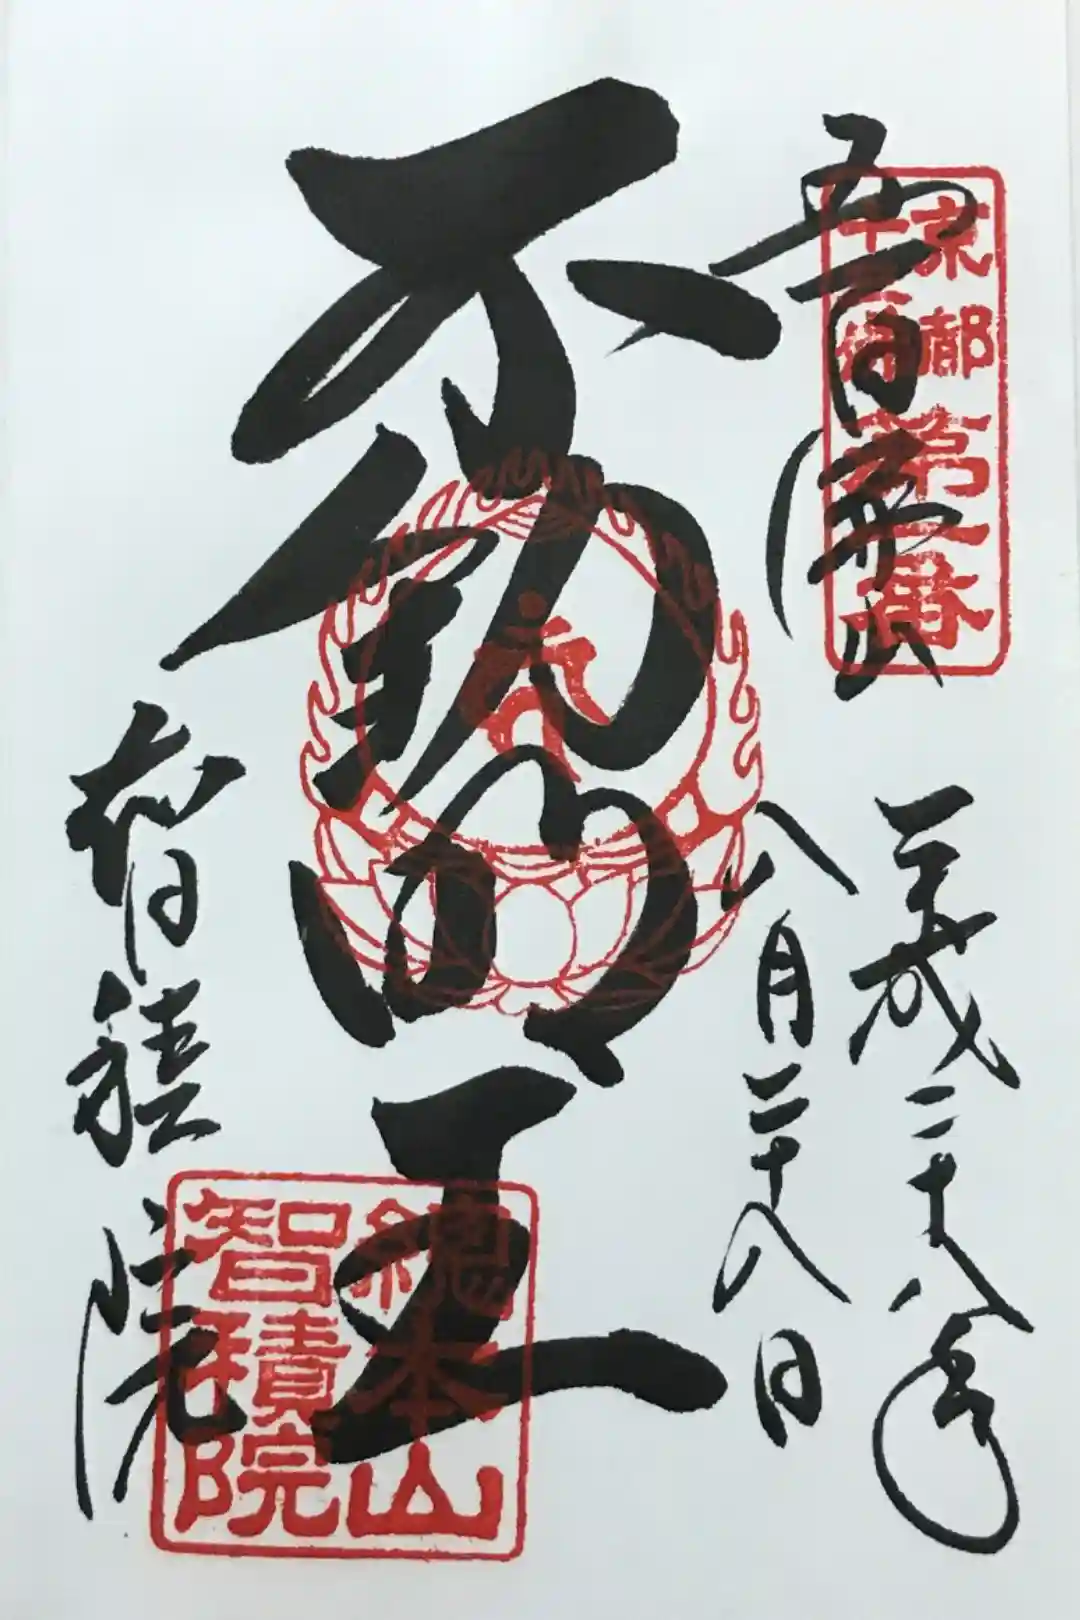 五百佛山
京都十三佛第一番
平成二十八年
八月二十八日
不動明王
智積院
總本山
智積院